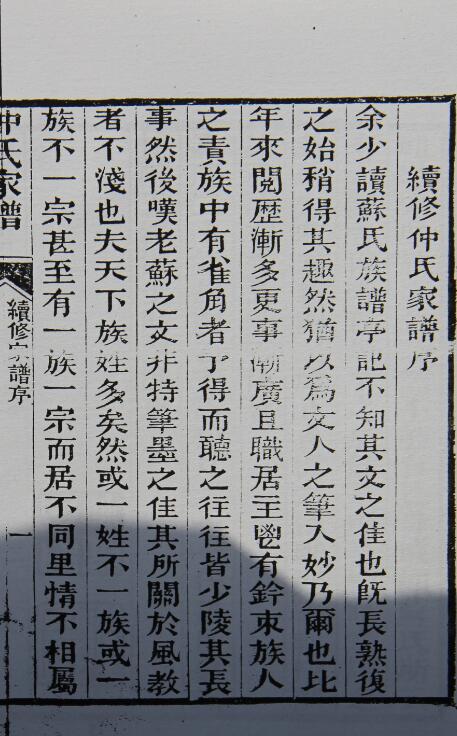 續修仲氏家譜序
余少讀蘇氏族譜亭記不知其文之佳也旣長熟復
之始稍得其趣然猶以爲文人之筆入妙乃爾也比
年來閱歷漸多更事漸廣且職居主鬯有鈐束族人
之責族中有雀角者予得而聽之往往皆少陵其長
事然後嘆老蘇之文非特筆墨之佳其所關於風教
者不淺也夫天下族姓多矣然或一姓不一族或一
族不一宗甚至有一族一宗而居不同里情不相屬
仲氏家譜
續修家譜序
一